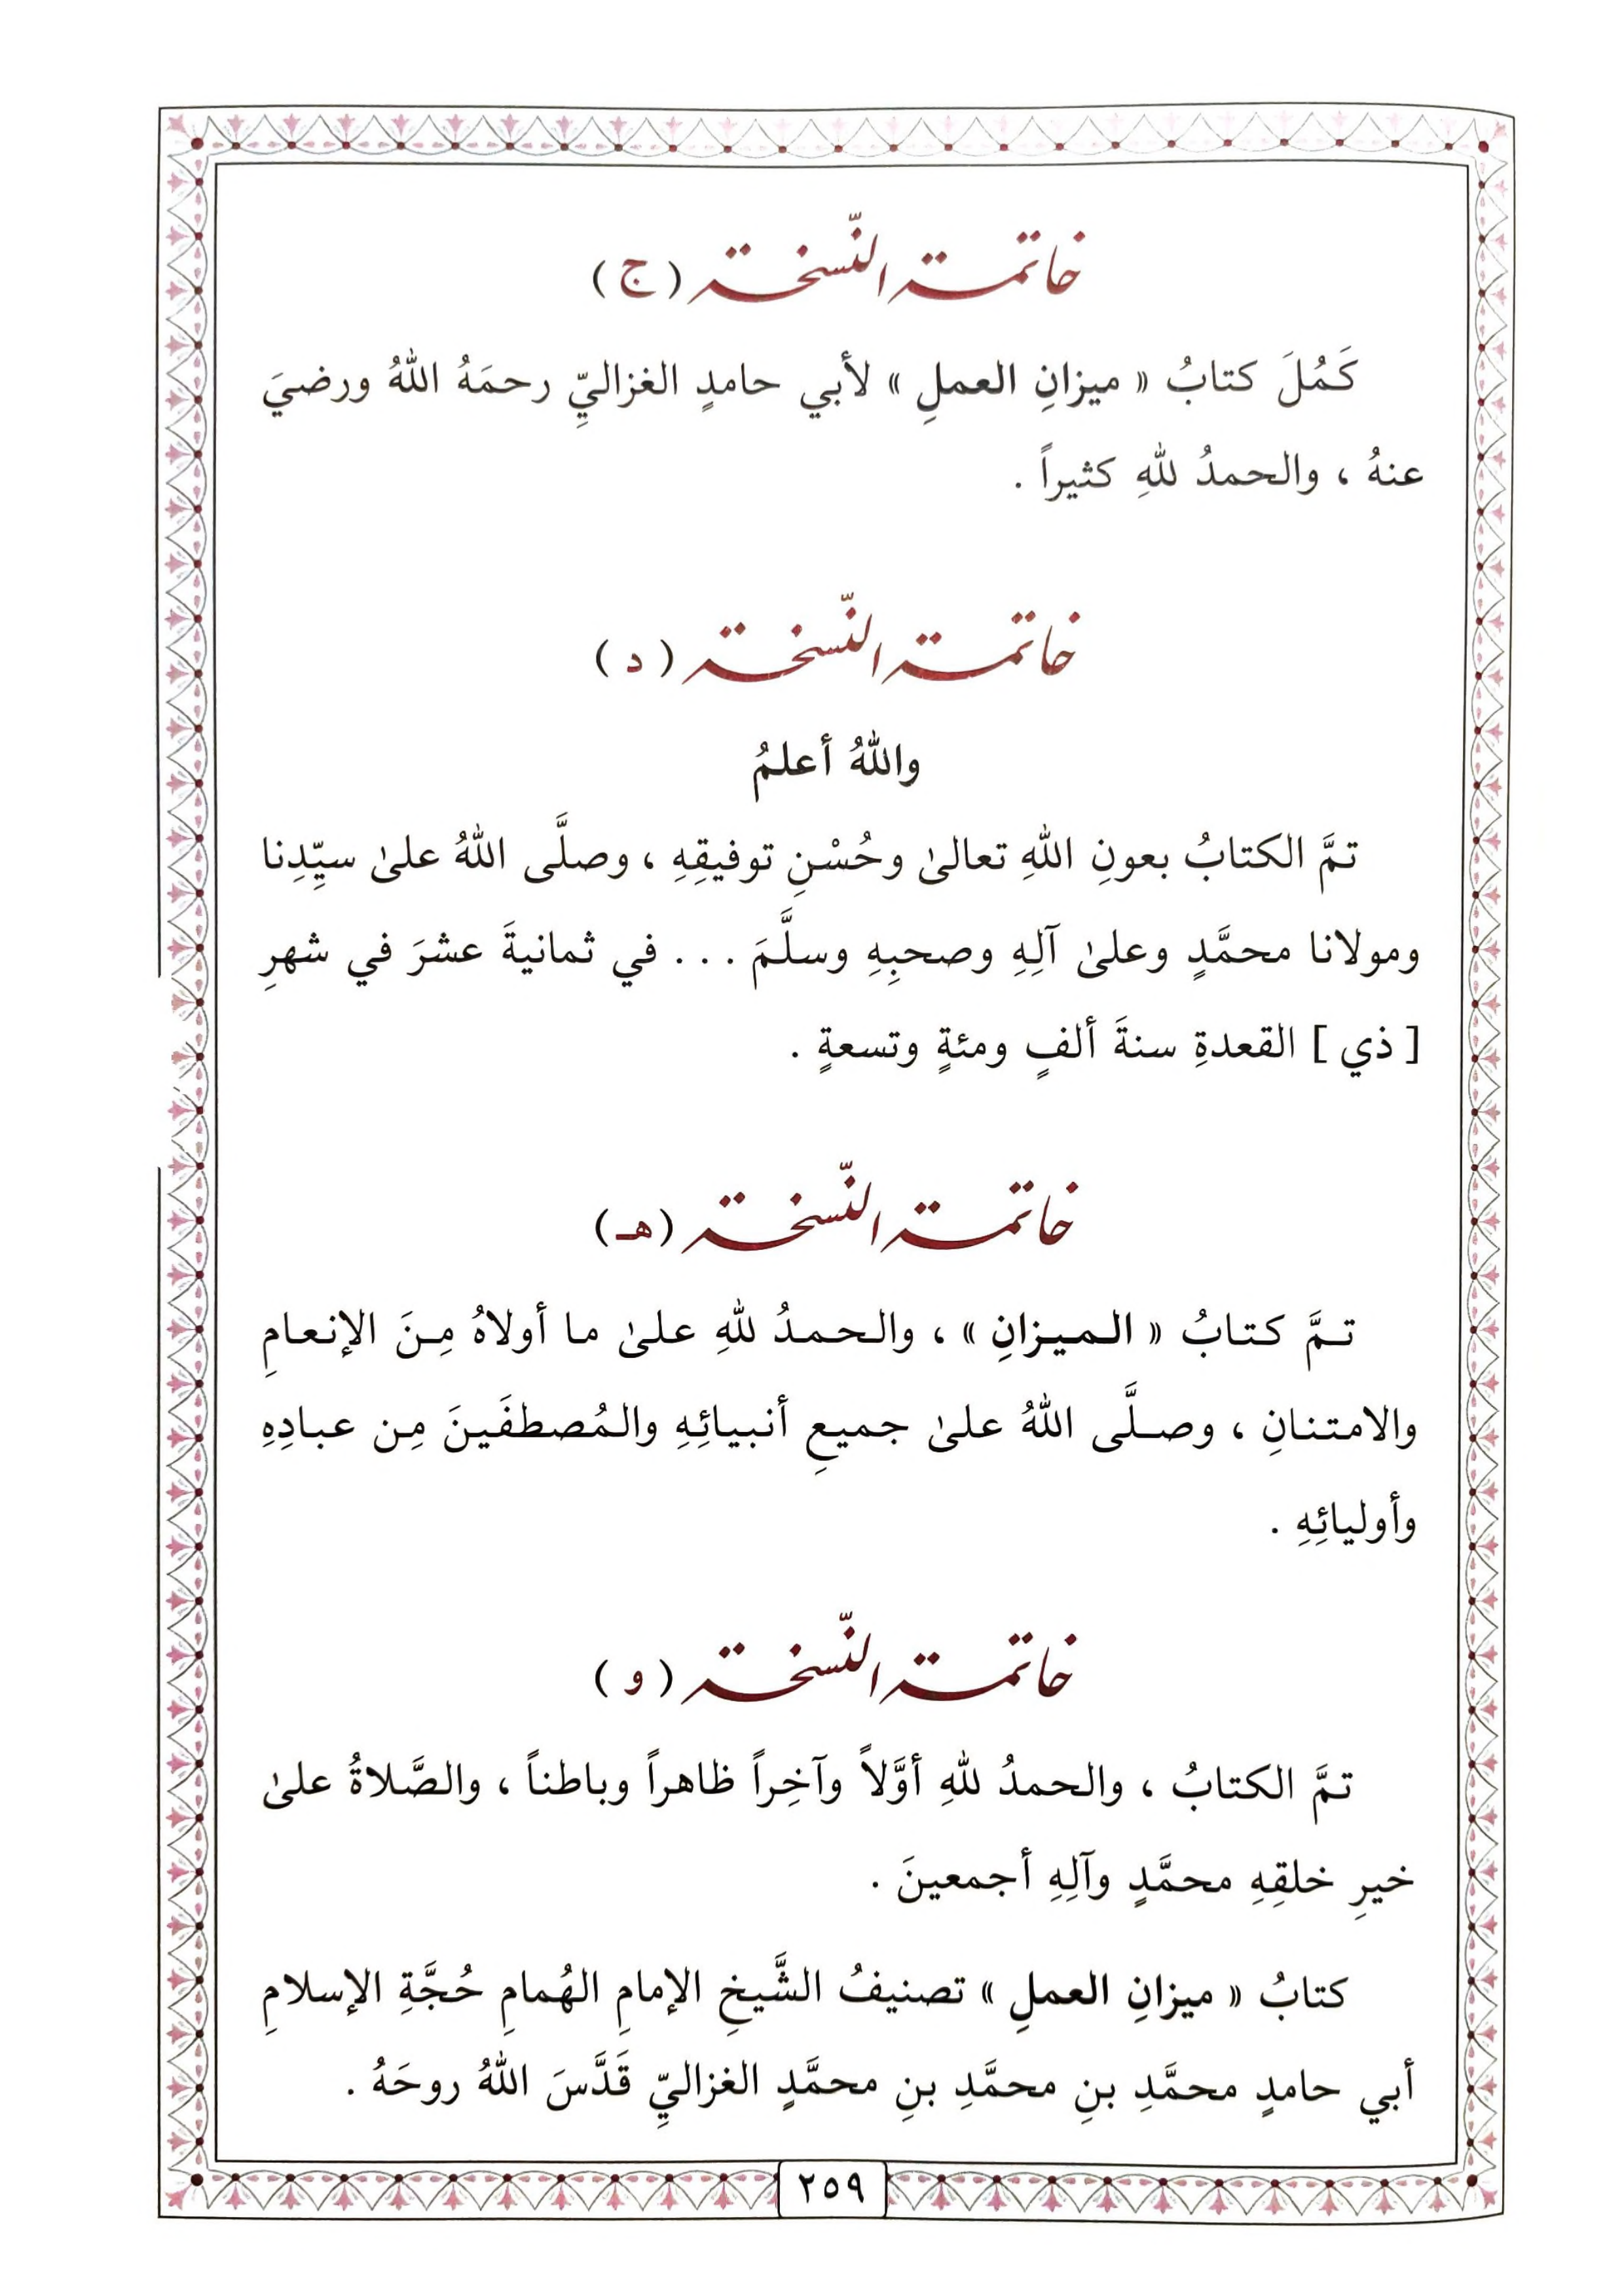 خاتمة النّسخة (ج)
كَمُلَ كتابُ « ميزانِ العملِ » لأبي حامدٍ الغزاليِّ رحمَهُ اللهُ ورضيَ
عنهُ ، والحمدُ للهِ كثيراً .
خاتمة النّسخة (د)
واللهُ أعلمُ
تمَّ الكتابُ بعونِ اللهِ تعالىٰ وحُسْنِ توفيقِهِ ، وصلَّى اللهُ علىٰ سيِّدِنا
ومولانا محمَّدٍ وعلىٰ آلِهِ وصحبِهِ وسلَّمَ . . . في ثمانيةَ عشرَ في شهرِ
[ ذي ] القعدةِ سنةَ ألفٍ ومئةٍ وتسعةٍ .
خاتمة النّسخة (هـ)
تمَّ كتابُ « الميزانِ » ، والحمدُ للهِ علىٰ ما أولاهُ مِنَ الإنعامِ
والامتنانِ ، وصلَّى اللهُ علىٰ جميعِ أنبيائِهِ والمُصطفَينَ مِن عبادِهِ
وأوليائِهِ .
خاتمة النّسخة (و)
تمَّ الكتابُ ، والحمدُ للهِ أوَّلاً وآخِراً ظاهراً وباطناً ، والصَّلاةُ علىٰ
خيرِ خلقِهِ محمَّدٍ وآلِهِ أجمعينَ .
كتابُ « ميزانِ العملِ » تصنيفُ الشَّيخِ الإمامِ الهُمامِ حُجَّةِ الإسلامِ
أبي حامدٍ محمَّدِ بنِ محمَّدِ بنِ محمَّدٍ الغزاليِّ قَدَّسَ اللهُ روحَهُ .
٢٥٩